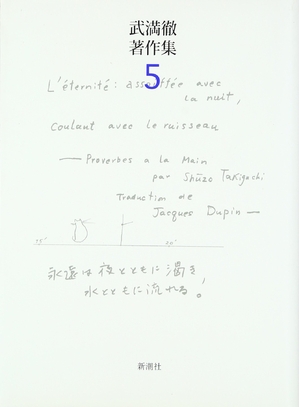 武満徹
著作集
5
L'éternité: assoiffée avec
la nuit,
coulant avec le ruisseau
— Proverbes a la Main
par Shūzo Takiguchi
Traduction de
Jacques Dupin —
永遠は夜とともに渇き
水とともに流れる!
新潮社